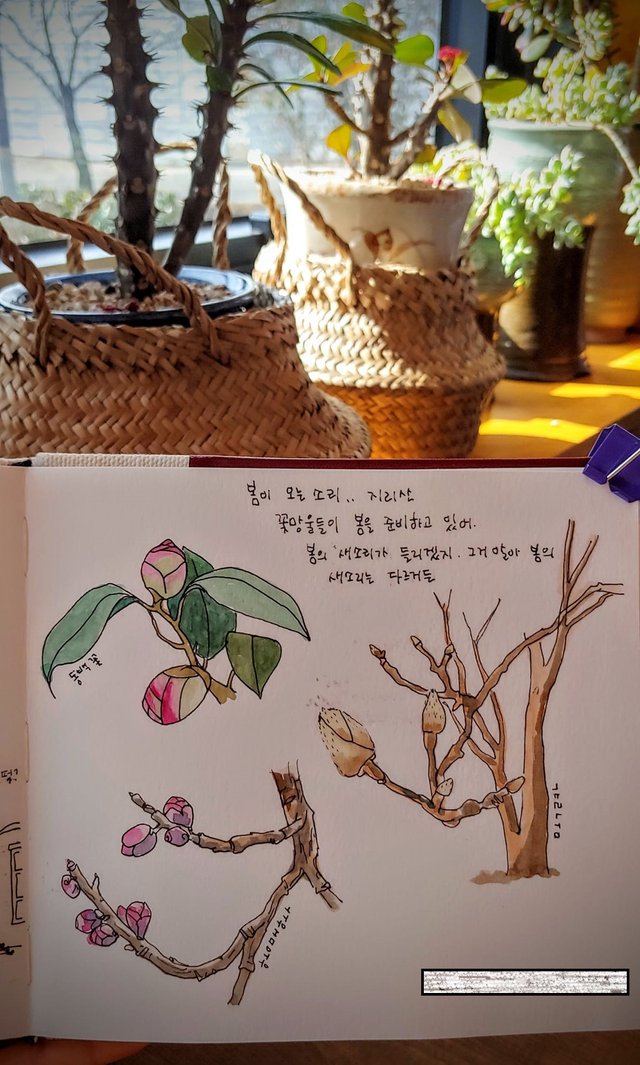 봄이 오는 소리.. 지리산
꽃망울들이 봄을 준비하고 있어.
봄의 새소리가 들리겠지. 그거 알아 봄의
새소리는 다르거든
동백꽃